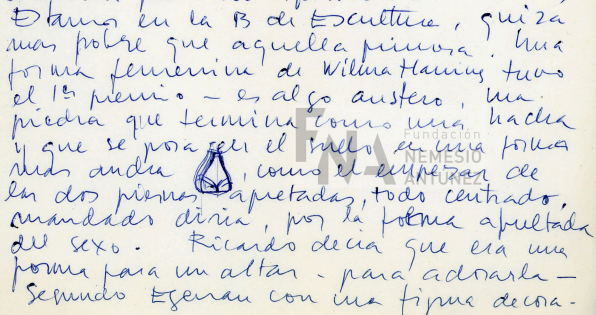 Estamos en la B de Escultura, quiza
mas pobre que aquella pinosa. Una
forma femenina de Wilma Hannig tuvo
el 1er premio – es algo austero, una
piedra que termina como una hacha
y que se posa en el suelo en una forma
mas ancha , como el empezar de
las dos piernas apretadas, todo centrado,
mandado diria, por la forma abultada
del sexo. Ricardo decia que era una
forma para un altar – para adorarla –
Segundo Egenau con una figura decora-
FNA
Fundación
NEMESIO
ANTÚNEZ